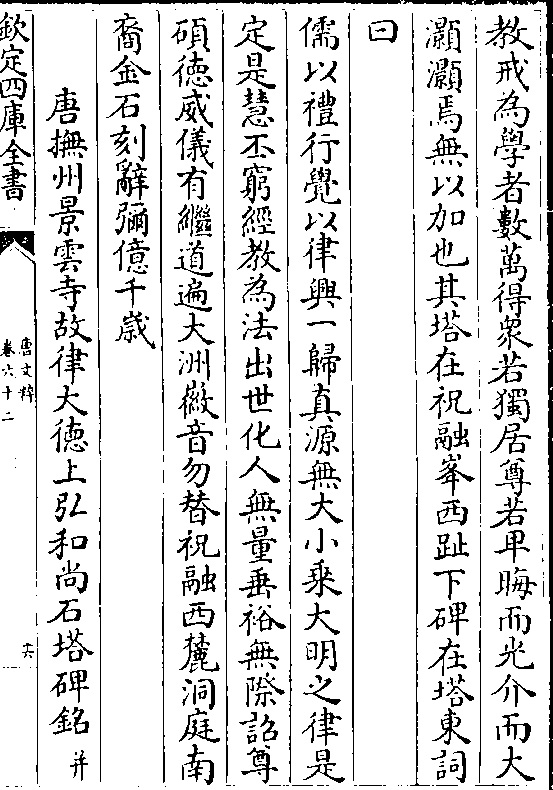 教戒為學者數萬得衆若獨居尊若卑晦而光介而大
灝灝焉無以加也其塔在祝融峯西趾下碑在塔東詞
曰
儒以禮行覺以律興一歸真源無大小乘大明之律是
定是慧丕窮經教為法出世化人無量垂裕無際詔尊
碩德威儀有繼道遍大洲徽音勿替祝融西麓洞庭南
裔金石刻辭彌億千歲
唐撫州景雲寺故律大德上弘和尚石塔碑銘 并
欽定四庫全書
唐文粹
卷六十二
六